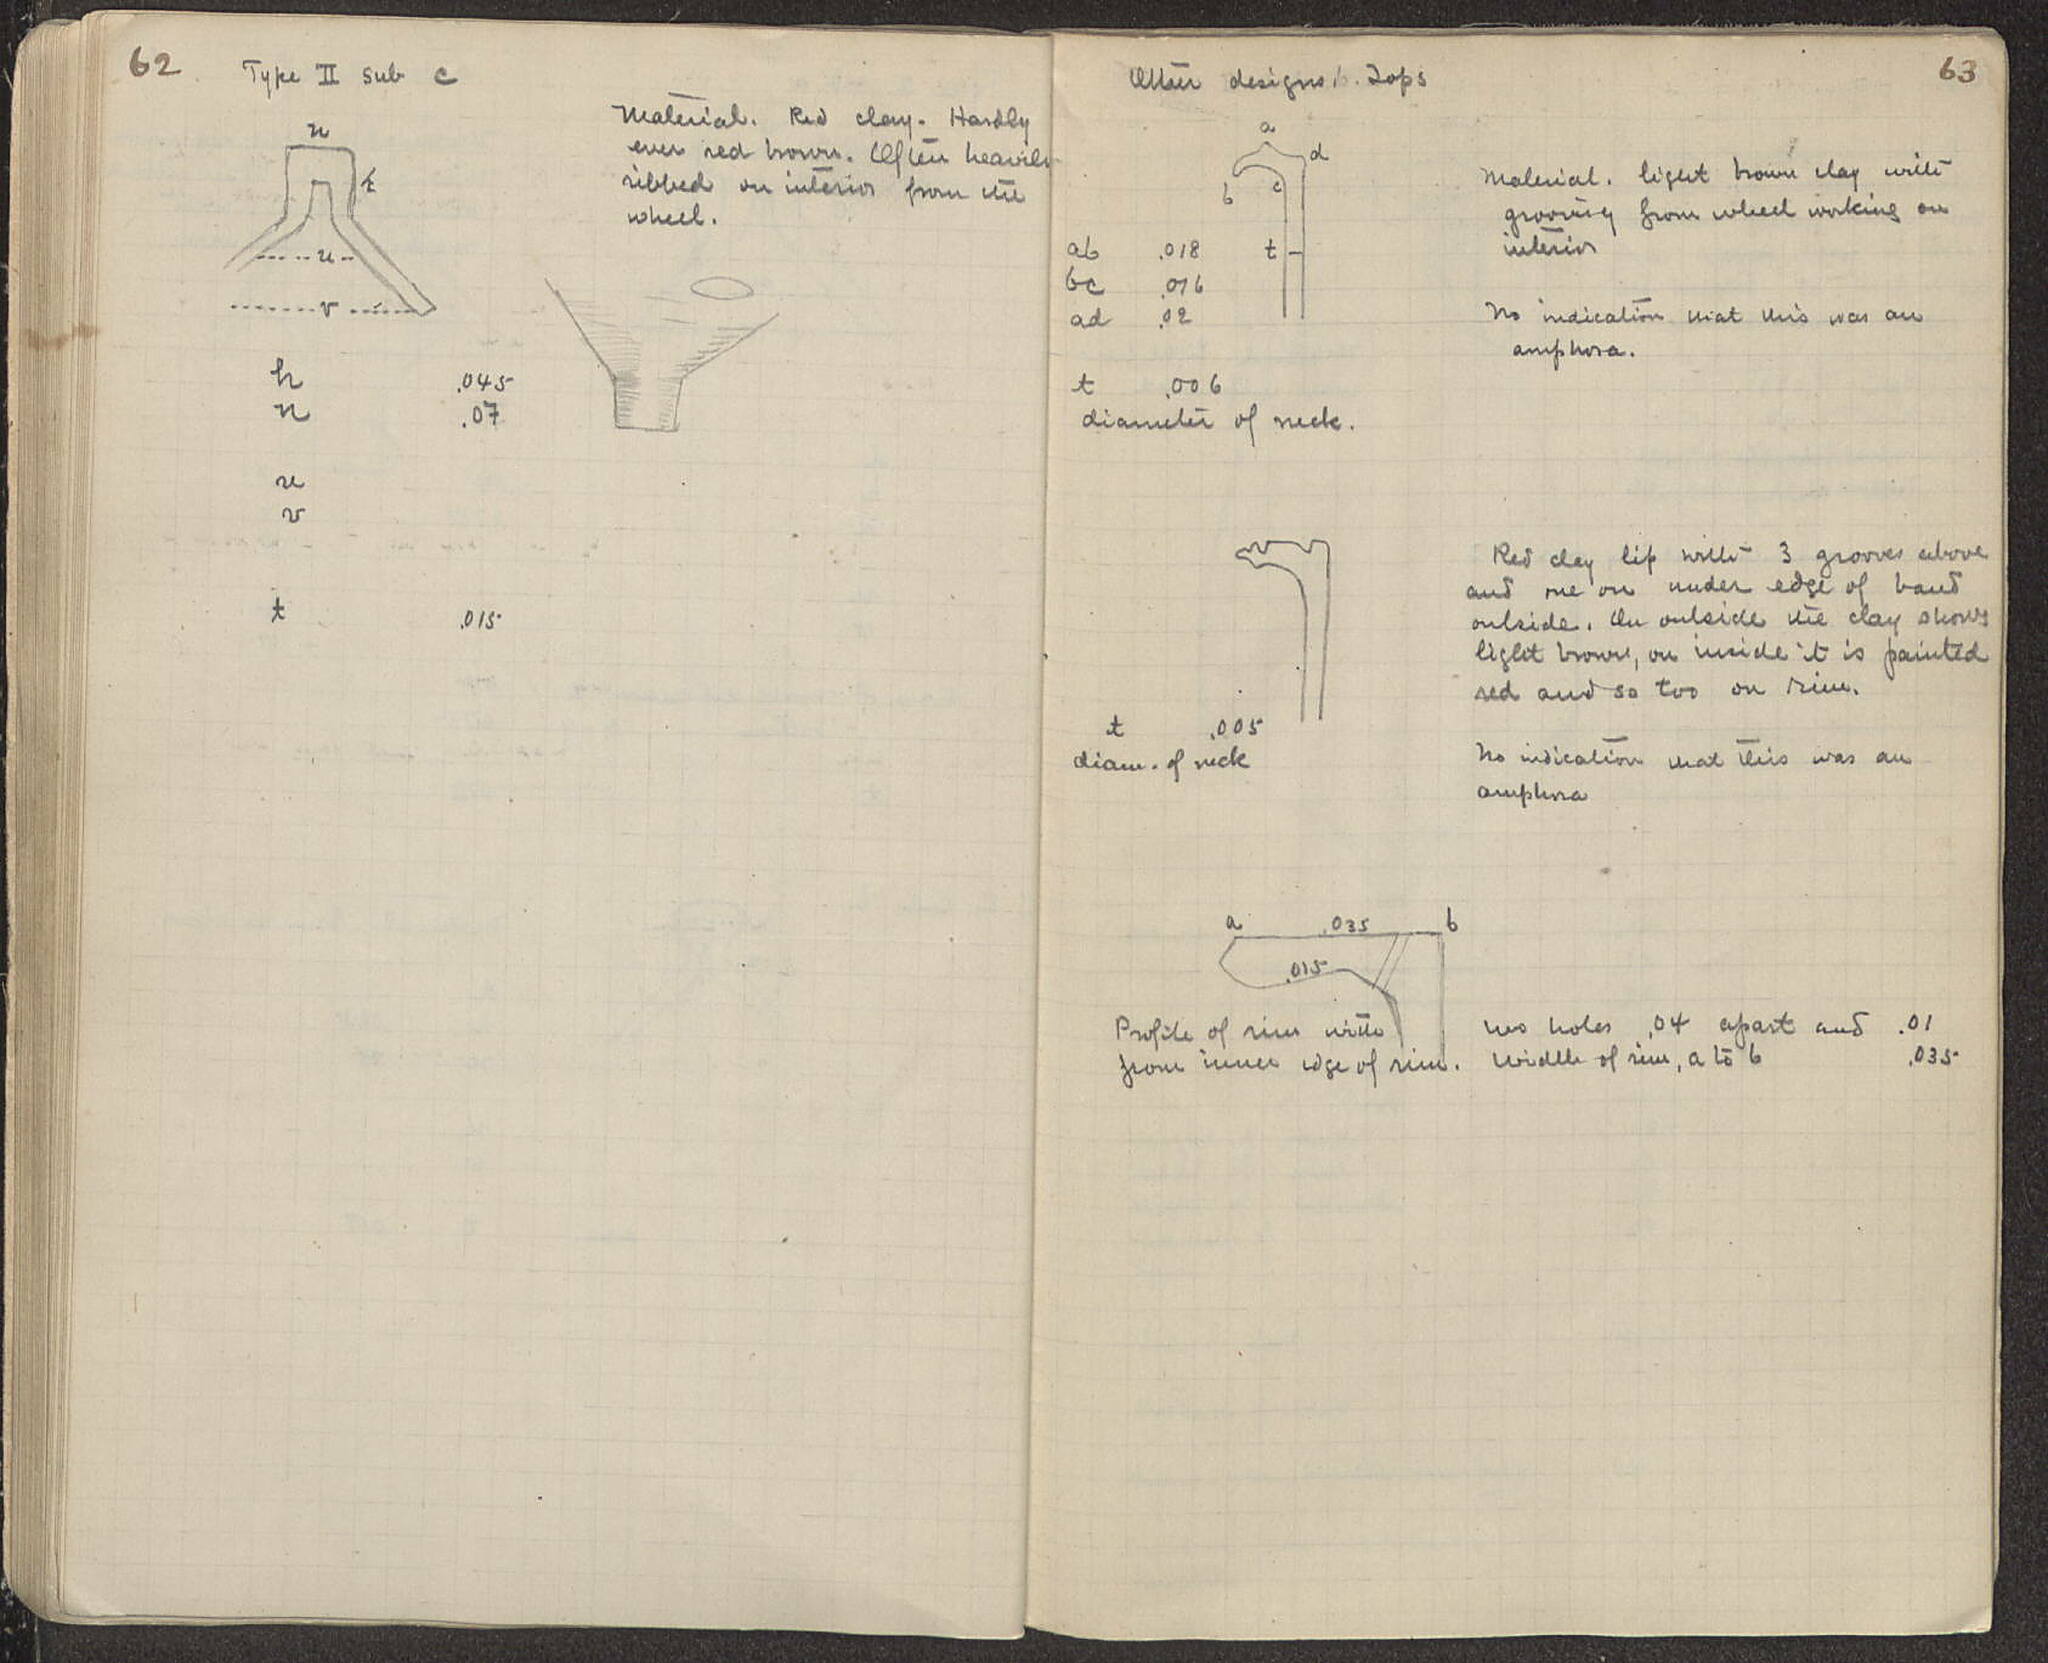 62
Type II sub c
n
h
u
v
Material. Red clay. Hardly
ever red brown. Often heavily
ribbed on interior from the
wheel.
h .045
n .07
u
v
t .015
63
Other designs b. Tops
a
d
b
c
t
ab .018
bc .016
ad .02
t .006
diameter of neck.
Material. light brown clay with
grooving from wheel working on
interior
No indication that this was an
amphora.
Red clay lip with 3 grooves above
and one on under edge of band
outside. On outside the clay shows
light brown, on inside it is painted
red and so too on rim.
t .005
diam. of neck
No indication that this was an
amphora
a .035 b
.015
Profile of rim with two holes .04 apart and .01
from inner edge of rim. Width of rim, a to b .035